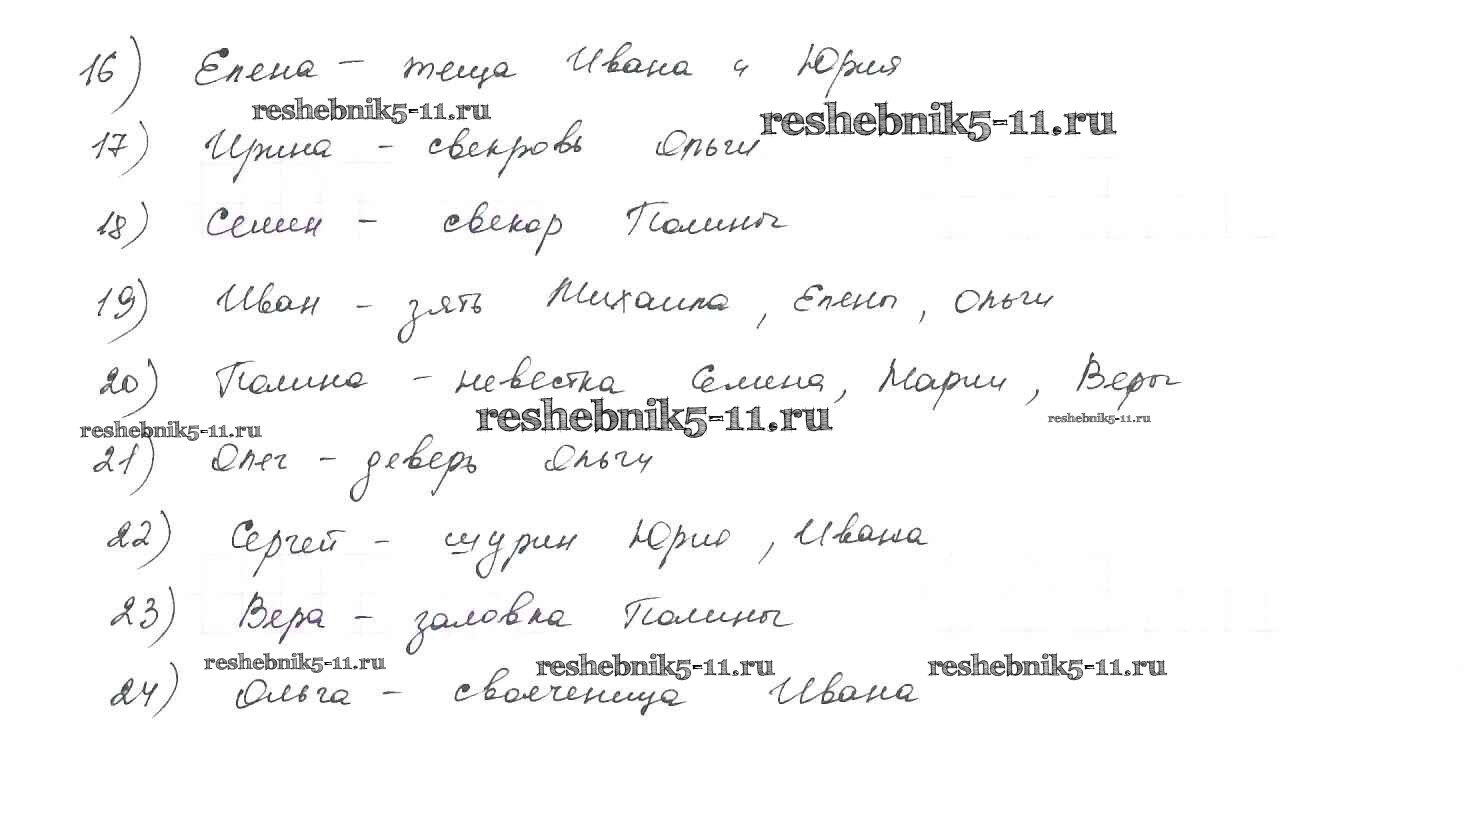 16) Елена – теща Ивана и Юрия
reshebnik5-11.ru reshebnik5-11.ru
17) Ирина – свекровь Ольги
18) Семен – свекор Полины
19) Иван – зять Михаила, Елены, Ольги
20) Полина – невестка Семена, Марии, Веры
reshebnik5-11.ru reshebnik5-11.ru reshebnik5-11.ru
21) Олег – деверь Ольги
22) Сергей – шурин Юрия, Ивана
23) Вера – золовка Полины
reshebnik5-11.ru reshebnik5-11.ru reshebnik5-11.ru
24) Ольга – свояченица Ивана